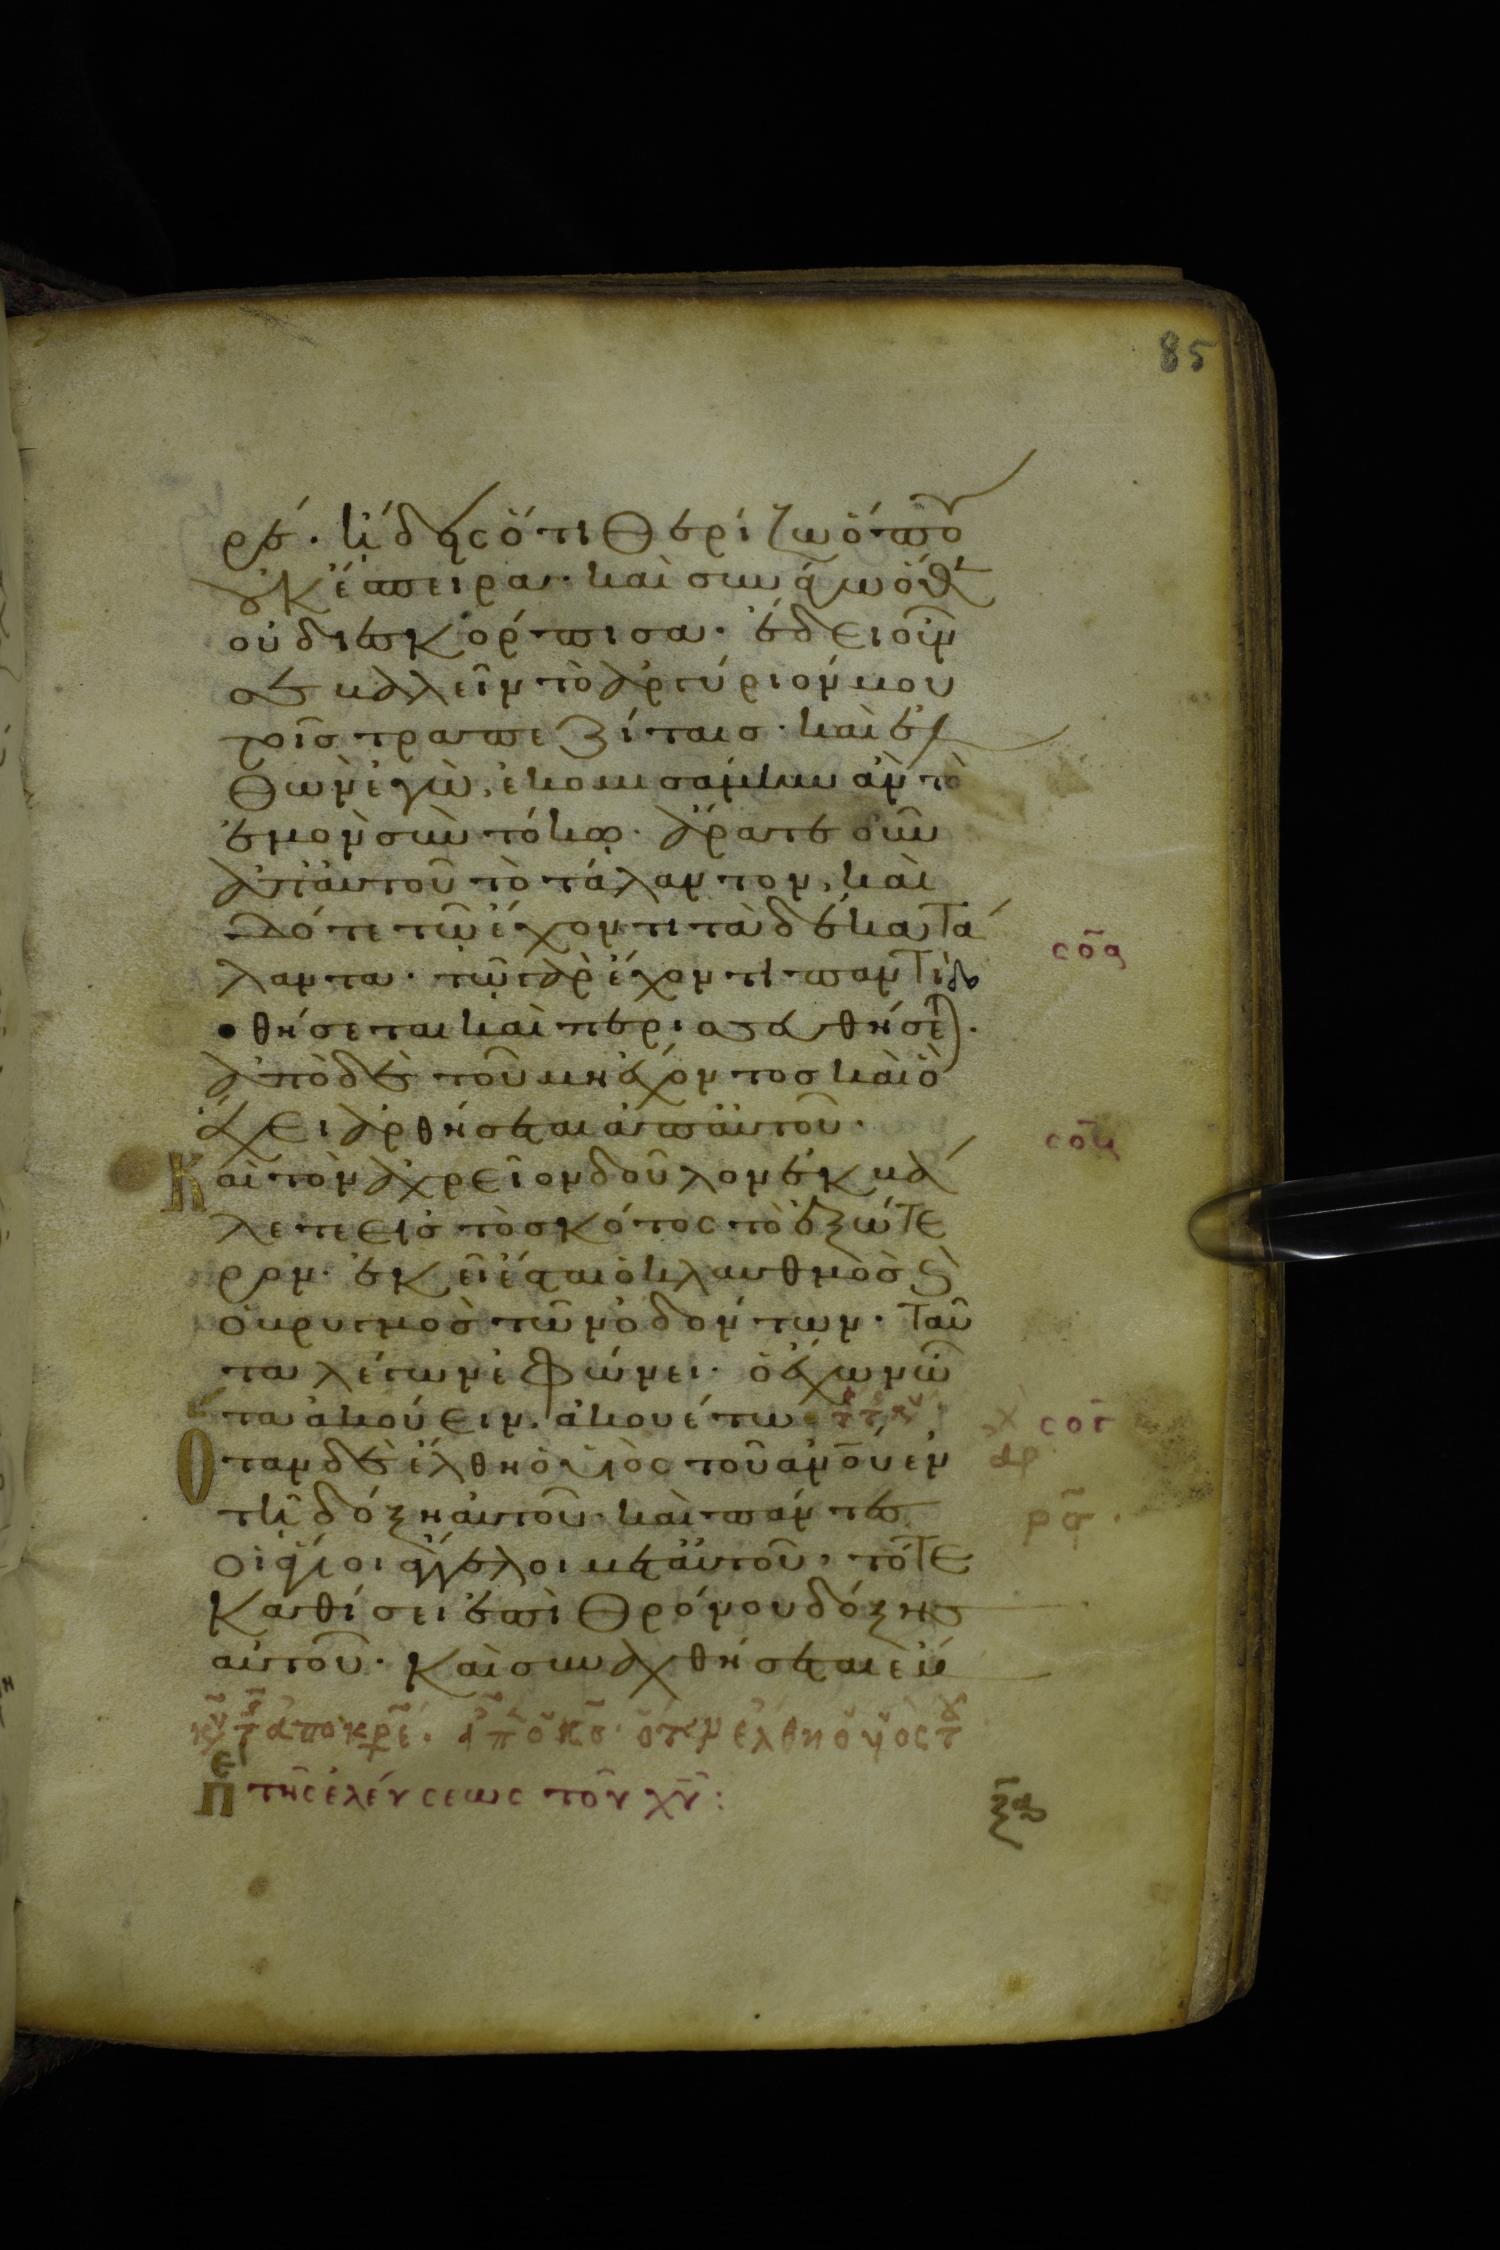 85
ρέ· ἤδης ὅτι θερίζω ὅπου
οὐκ ἔσπειρα· καὶ συνάγω ὅθεν
οὐ διεσκόρπισα· ἔδει οὖν
σε βαλεῖν τὸ ἀργύριόν μου
τοῖς τραπεζίταις· καὶ ἐλ
θὼν ἐγὼ, ἐκομισάμην ἂν τὸ
ἐμὸν σὺν τόκω· ἄρατε οὖν
ἀπ' αὐτοῦ τὸ τάλαντον, καὶ
δότε τῶ ἔχοντι τὰ δέκα τά
λαντα· τῶ γὰρ ἔχοντι παντὶ δο
θήσεται καὶ περισσευθήσεται·
ἀπὸ δὲ τοῦ μὴ ἔχοντος καὶ ὃ
ἔχει ἀρθήσεται ἀπ' αὐτοῦ·
Καὶ τὸν ἀχρεῖον δοῦλον ἐκβά
λετε εἰς τὸ σκότος τὸ ἐξώτε
ρον· ἐκεῖ ἔσται ὁ κλαυθμὸς καὶ
ὁ βρυγμὸς τῶν ὀδόντων· ταῦ
τα λέγων ἐφώνει· ὁ ἔχων ὦ
τα ἀκούειν, ἀκουέτω
Ὅταν δὲ ἔλθη ὁ υἱὸς τοῦ ἀνου ἐν
τῆ δόξη αὐτοῦ· καὶ πάντες
οἱ ἅγιοι ἄγγελοι μετ' αὐτοῦ, τότε
καθίσει ἐπὶ θρόνου δόξης
αὐτοῦ· καὶ συναχθήσεται ἔμ
κυ τ ἀπόκρε· εἶπ ὁ κς· ὅταν ἔλθη ὁ υἱὸς τ
Περὶ τῆς ἐλεύσεως τοῦ χυ:
σοα
σοβ
σογ
αρ
ξδ